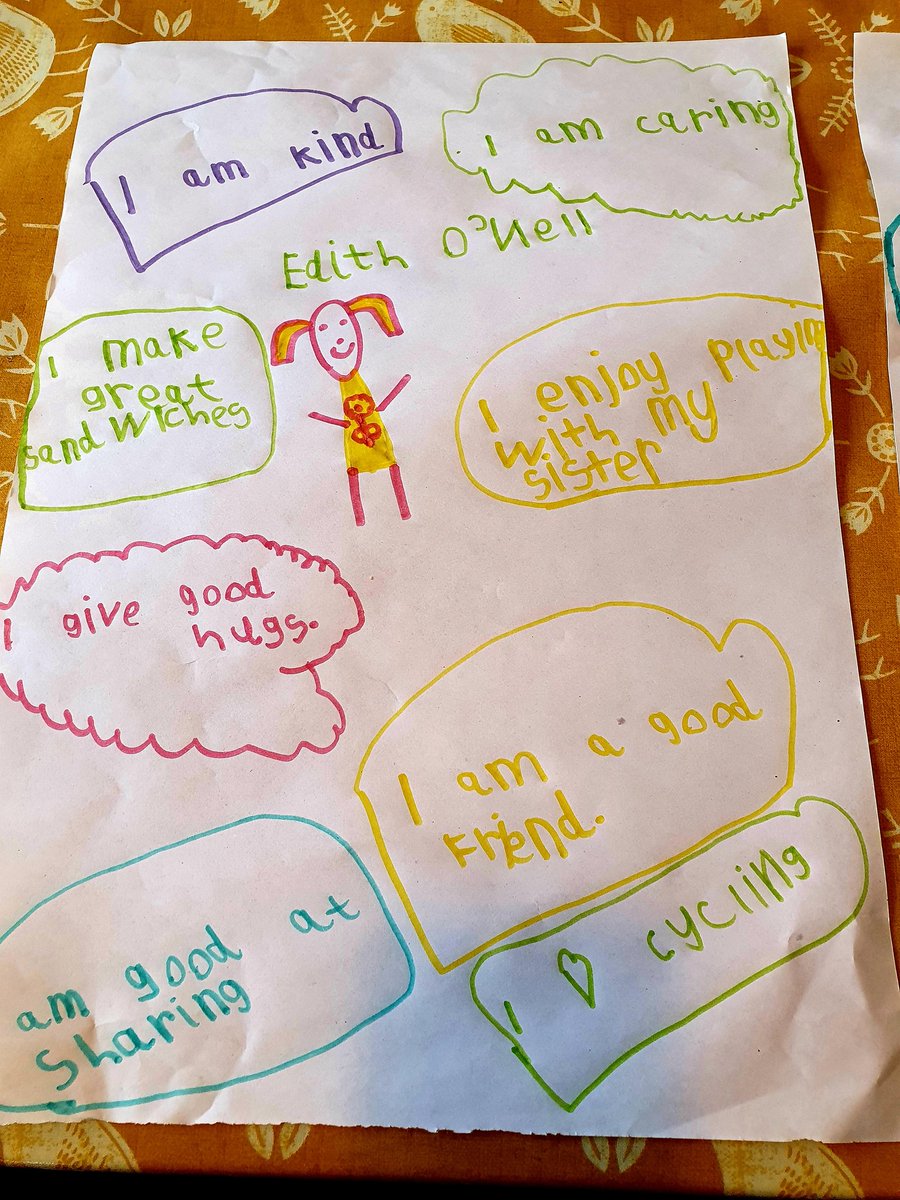 I am kind
I am caring
Edith O'Nell
I make
great
sandwiches
I enjoy playin
with my
sister
I give good
hugs.
I am a good
Friend.
am good at
Sharing
I cycling